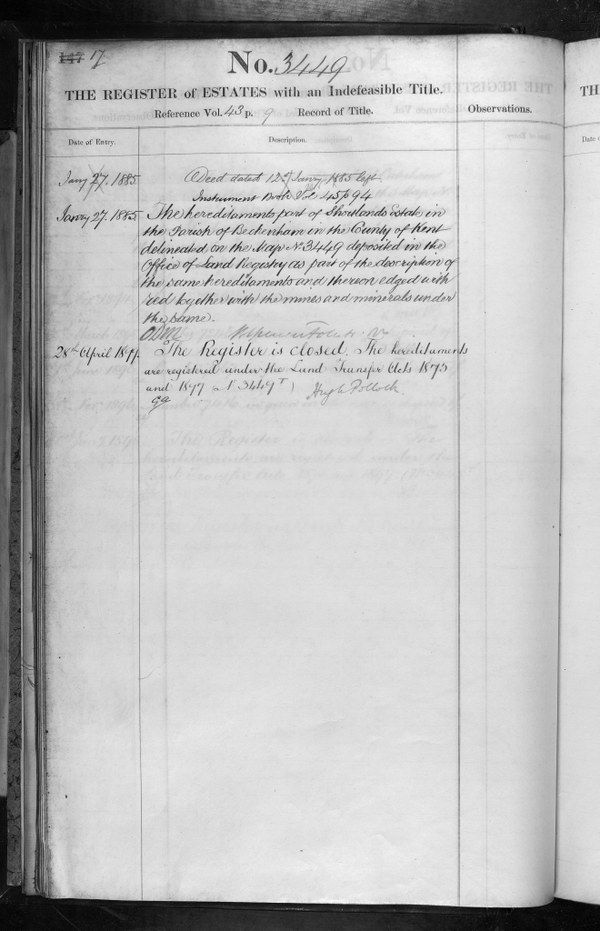 147 17
No. 3449
THE REGISTER of ESTATES with an Indefeasible Title.
Reference Vol. 43 p. 9 Record of Title.
Observations.
Date of Entry.
Description.
Jany 27. 1885
Deed dated 12th Janry. 1885 left
Instrument Book Vol 45 p 94
Janry 27. 1885.
The hereditaments part of Shortlands Estate in
the Parish of Beckenham in the County of Kent
delineated on the Map No 3449 deposited in the
Office of Land Registry as part of the description of
the same hereditaments and thereon edged with
red together with the mines and minerals under
the same.
28th April 1899.
The Register is closed. The hereditaments
are registered under the Land Transfer Acts 1875
and 1897 3449
Hugh Pollock
TH
Date